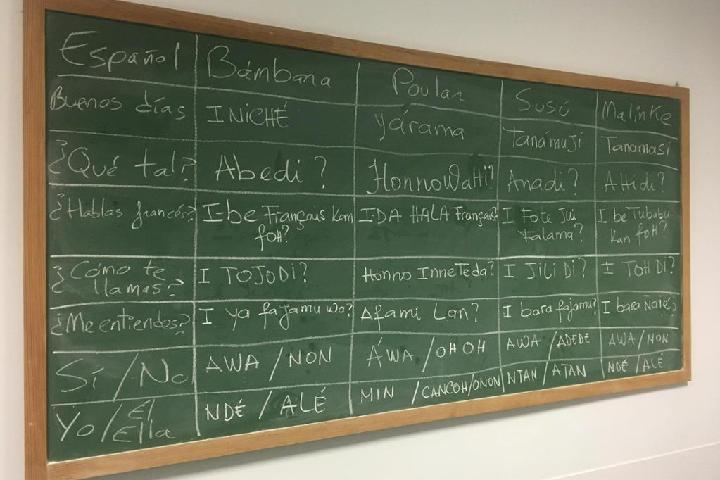 Español Bámbana Poulan Susú Malinke
Buenos días INICHÉ Yárama Tanámuji Tanamasi
¿Qué tal? Abedi? HonnoWaHi? Anadi? Ahidi?
¿Hablas francés? I-be Français Kan foh? I-DA HALA Français? I Fote Jus falama? I be Tubabu Kan foh?
¿Cómo te llamas? I TOJODI? Honno InneTeda? I JILI DI? I TOH DI?
¿Me entiendes? I ya fajamu wo? Afami Lon? I bara fajamu? I bara
Sí / No AWA / NON ÁWA / OH OH AWA / ADEDE AWA / NON
Yo / Él Ella NDÉ / ALÉ MIN / CANCOH/ONON NTAN / ATAN NDÉ / ALÉ